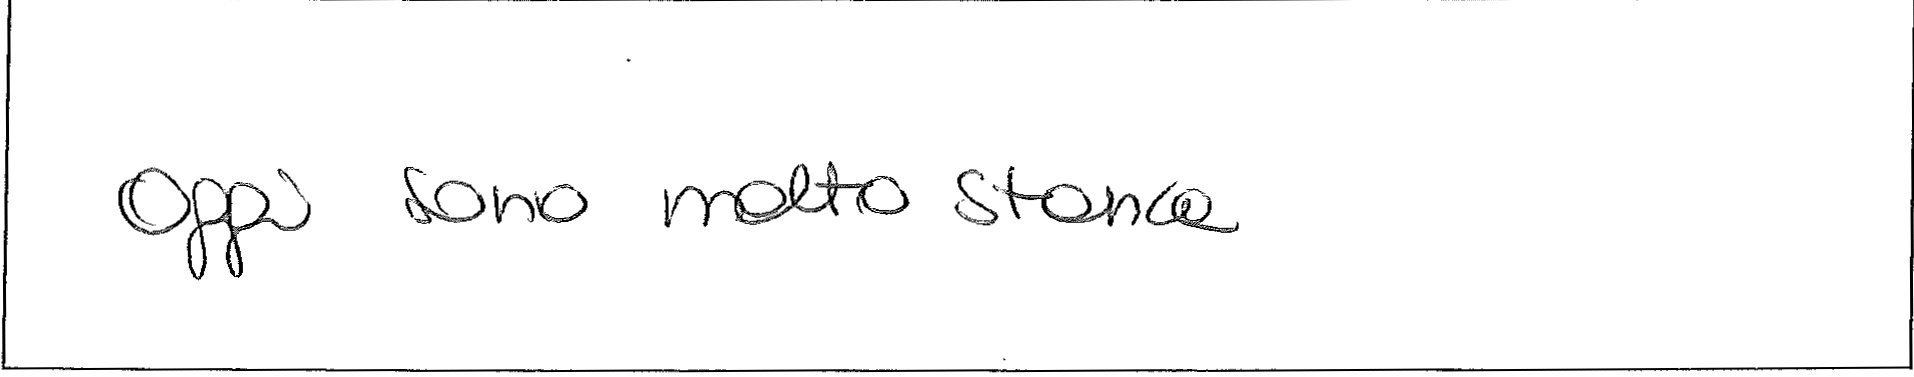 Oggi sono molto stanca